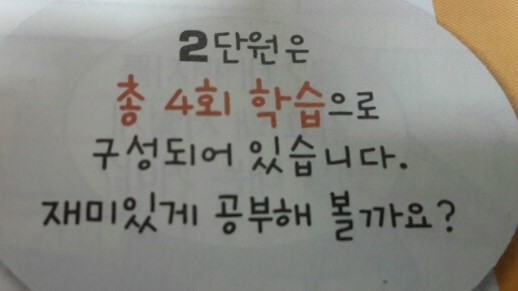 2단원은
총 4회 학습으로
구성되어 있습니다.
재미있게 공부해 볼까요?